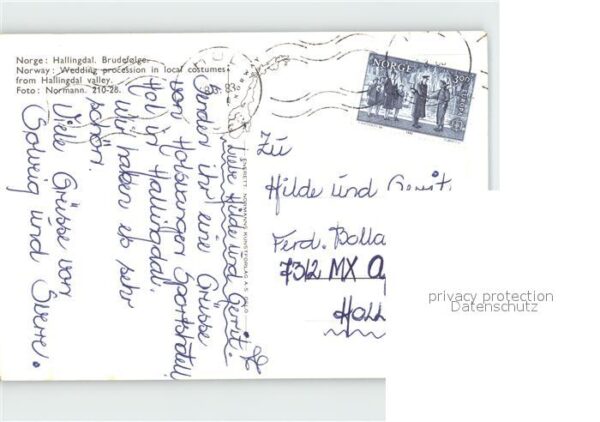 Norge: Hallingdal. Brudefølge.
Norway: Wedding procession in local costumes
from Hallingdal valley.
Foto: Normann. 210-28.
NORGE
83
ENERETT NORMANNS KUNSTFORLAG A.S. OSLO
Liebe Hilde und Gerit.
Senden ihr eine Grüsse
von Holsvangen Sportshotell
Hol in Hallingdal.
Wir haben es sehr
schön.
Viele Grüsse von
Solveig und Sverre.
Zu
Hilde und Gerit
Ferd. Bolla
7312 MX A
Holl
privacy protection
Datenschutz